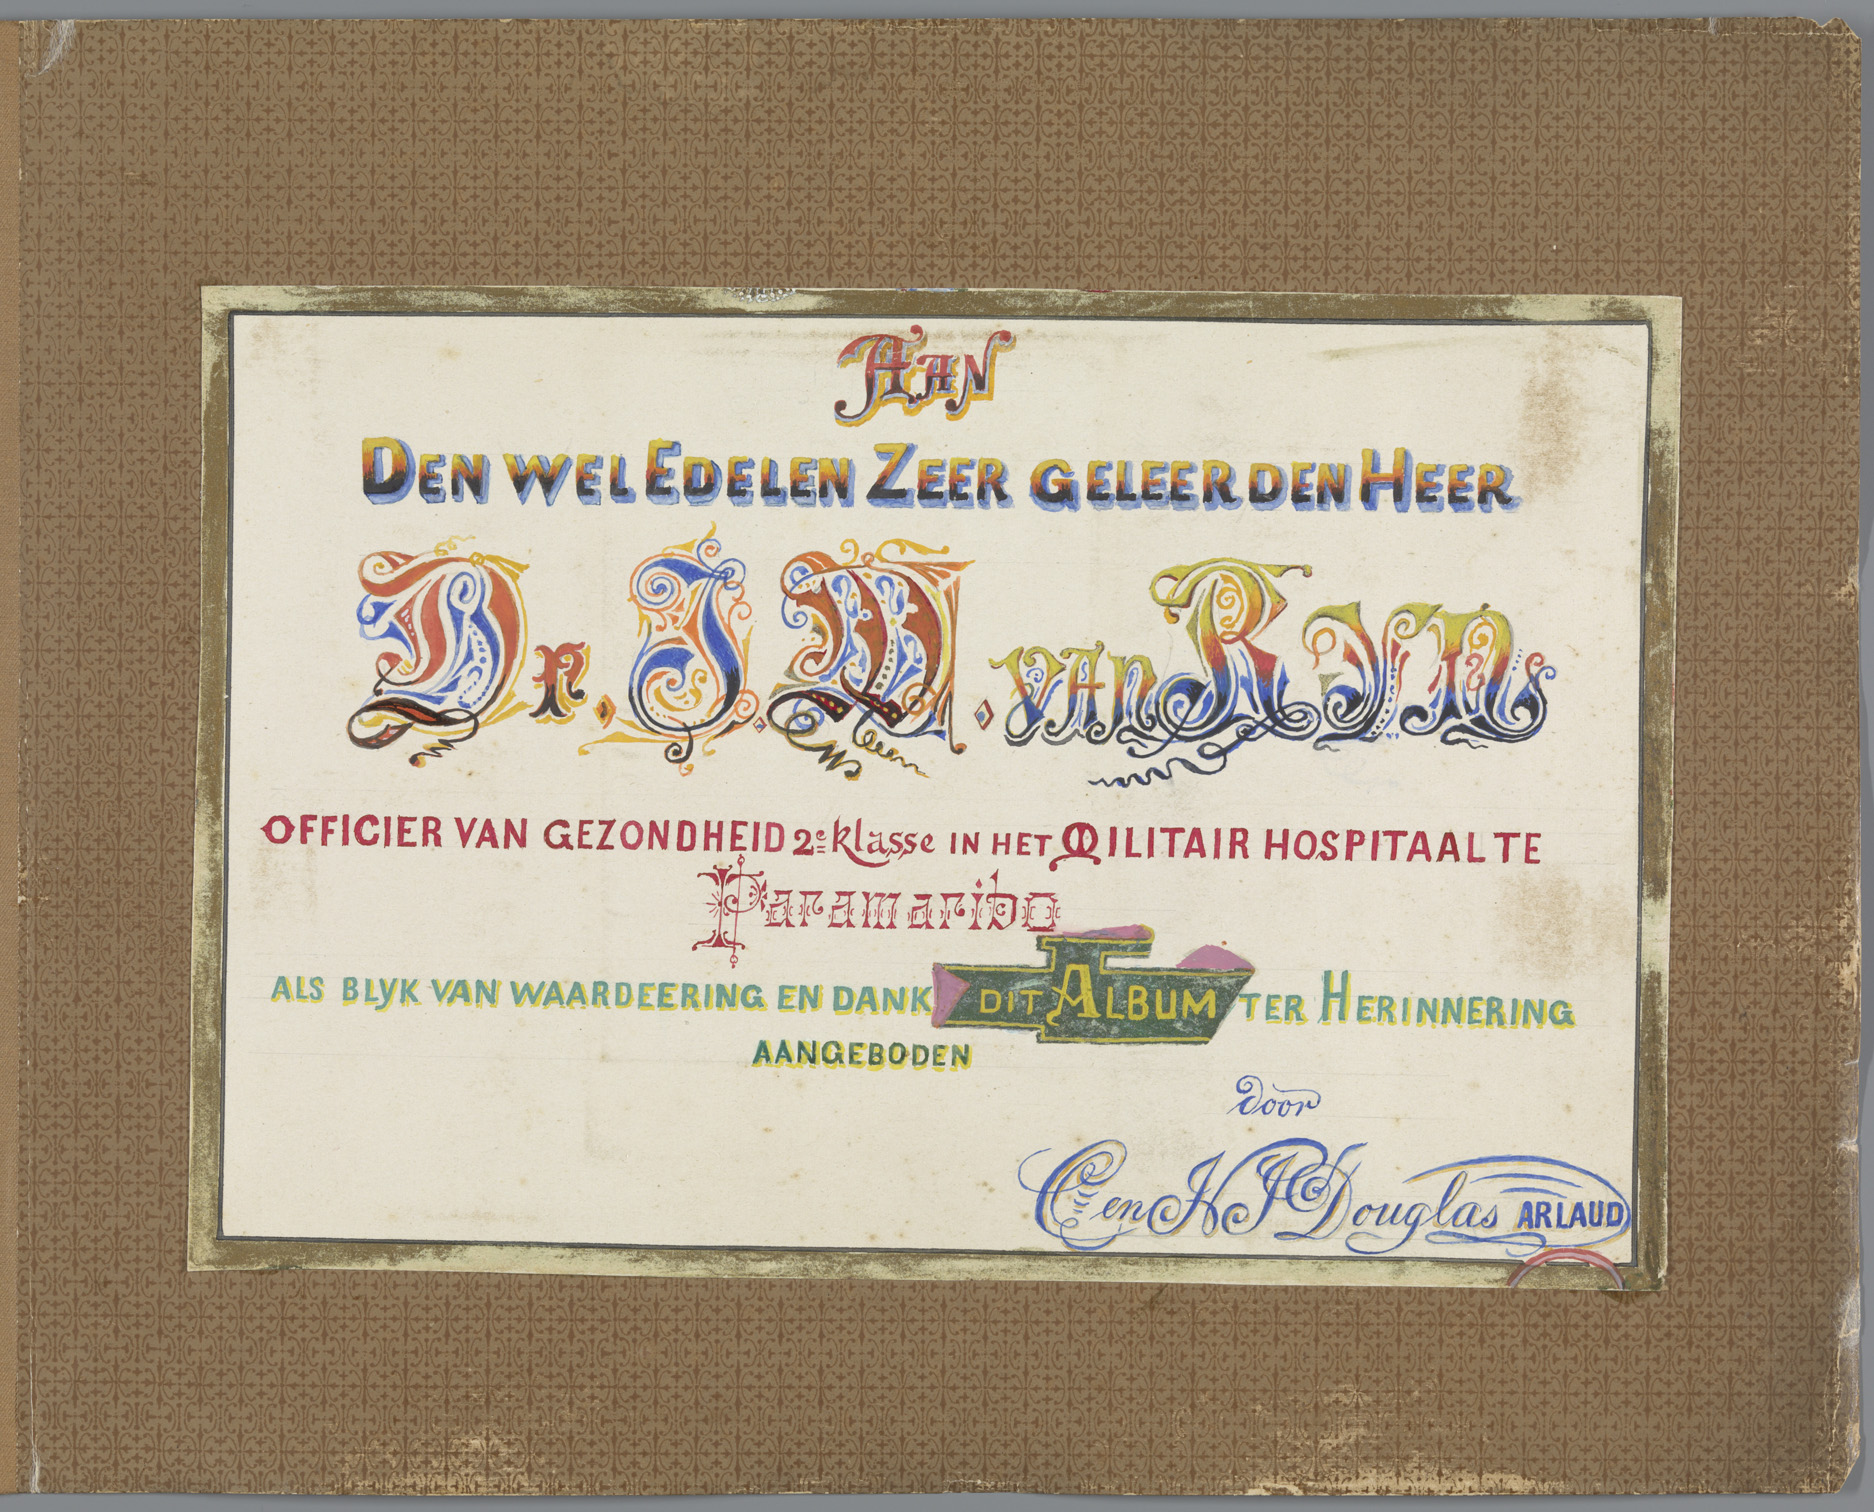 AAN
DEN WEL EDELEN ZEER GELEERDEN HEER
Dr. J. M. VAN RYN
OFFICIER VAN GEZONDHEID 2e klasse IN HET MILITAIR HOSPITAAL TE
Paramaribo
ALS BLYK VAN WAARDEERING EN DANK DIT ALBUM TER HERINNERING
AANGEBODEN
door
C en H J C Douglas ARLAUD